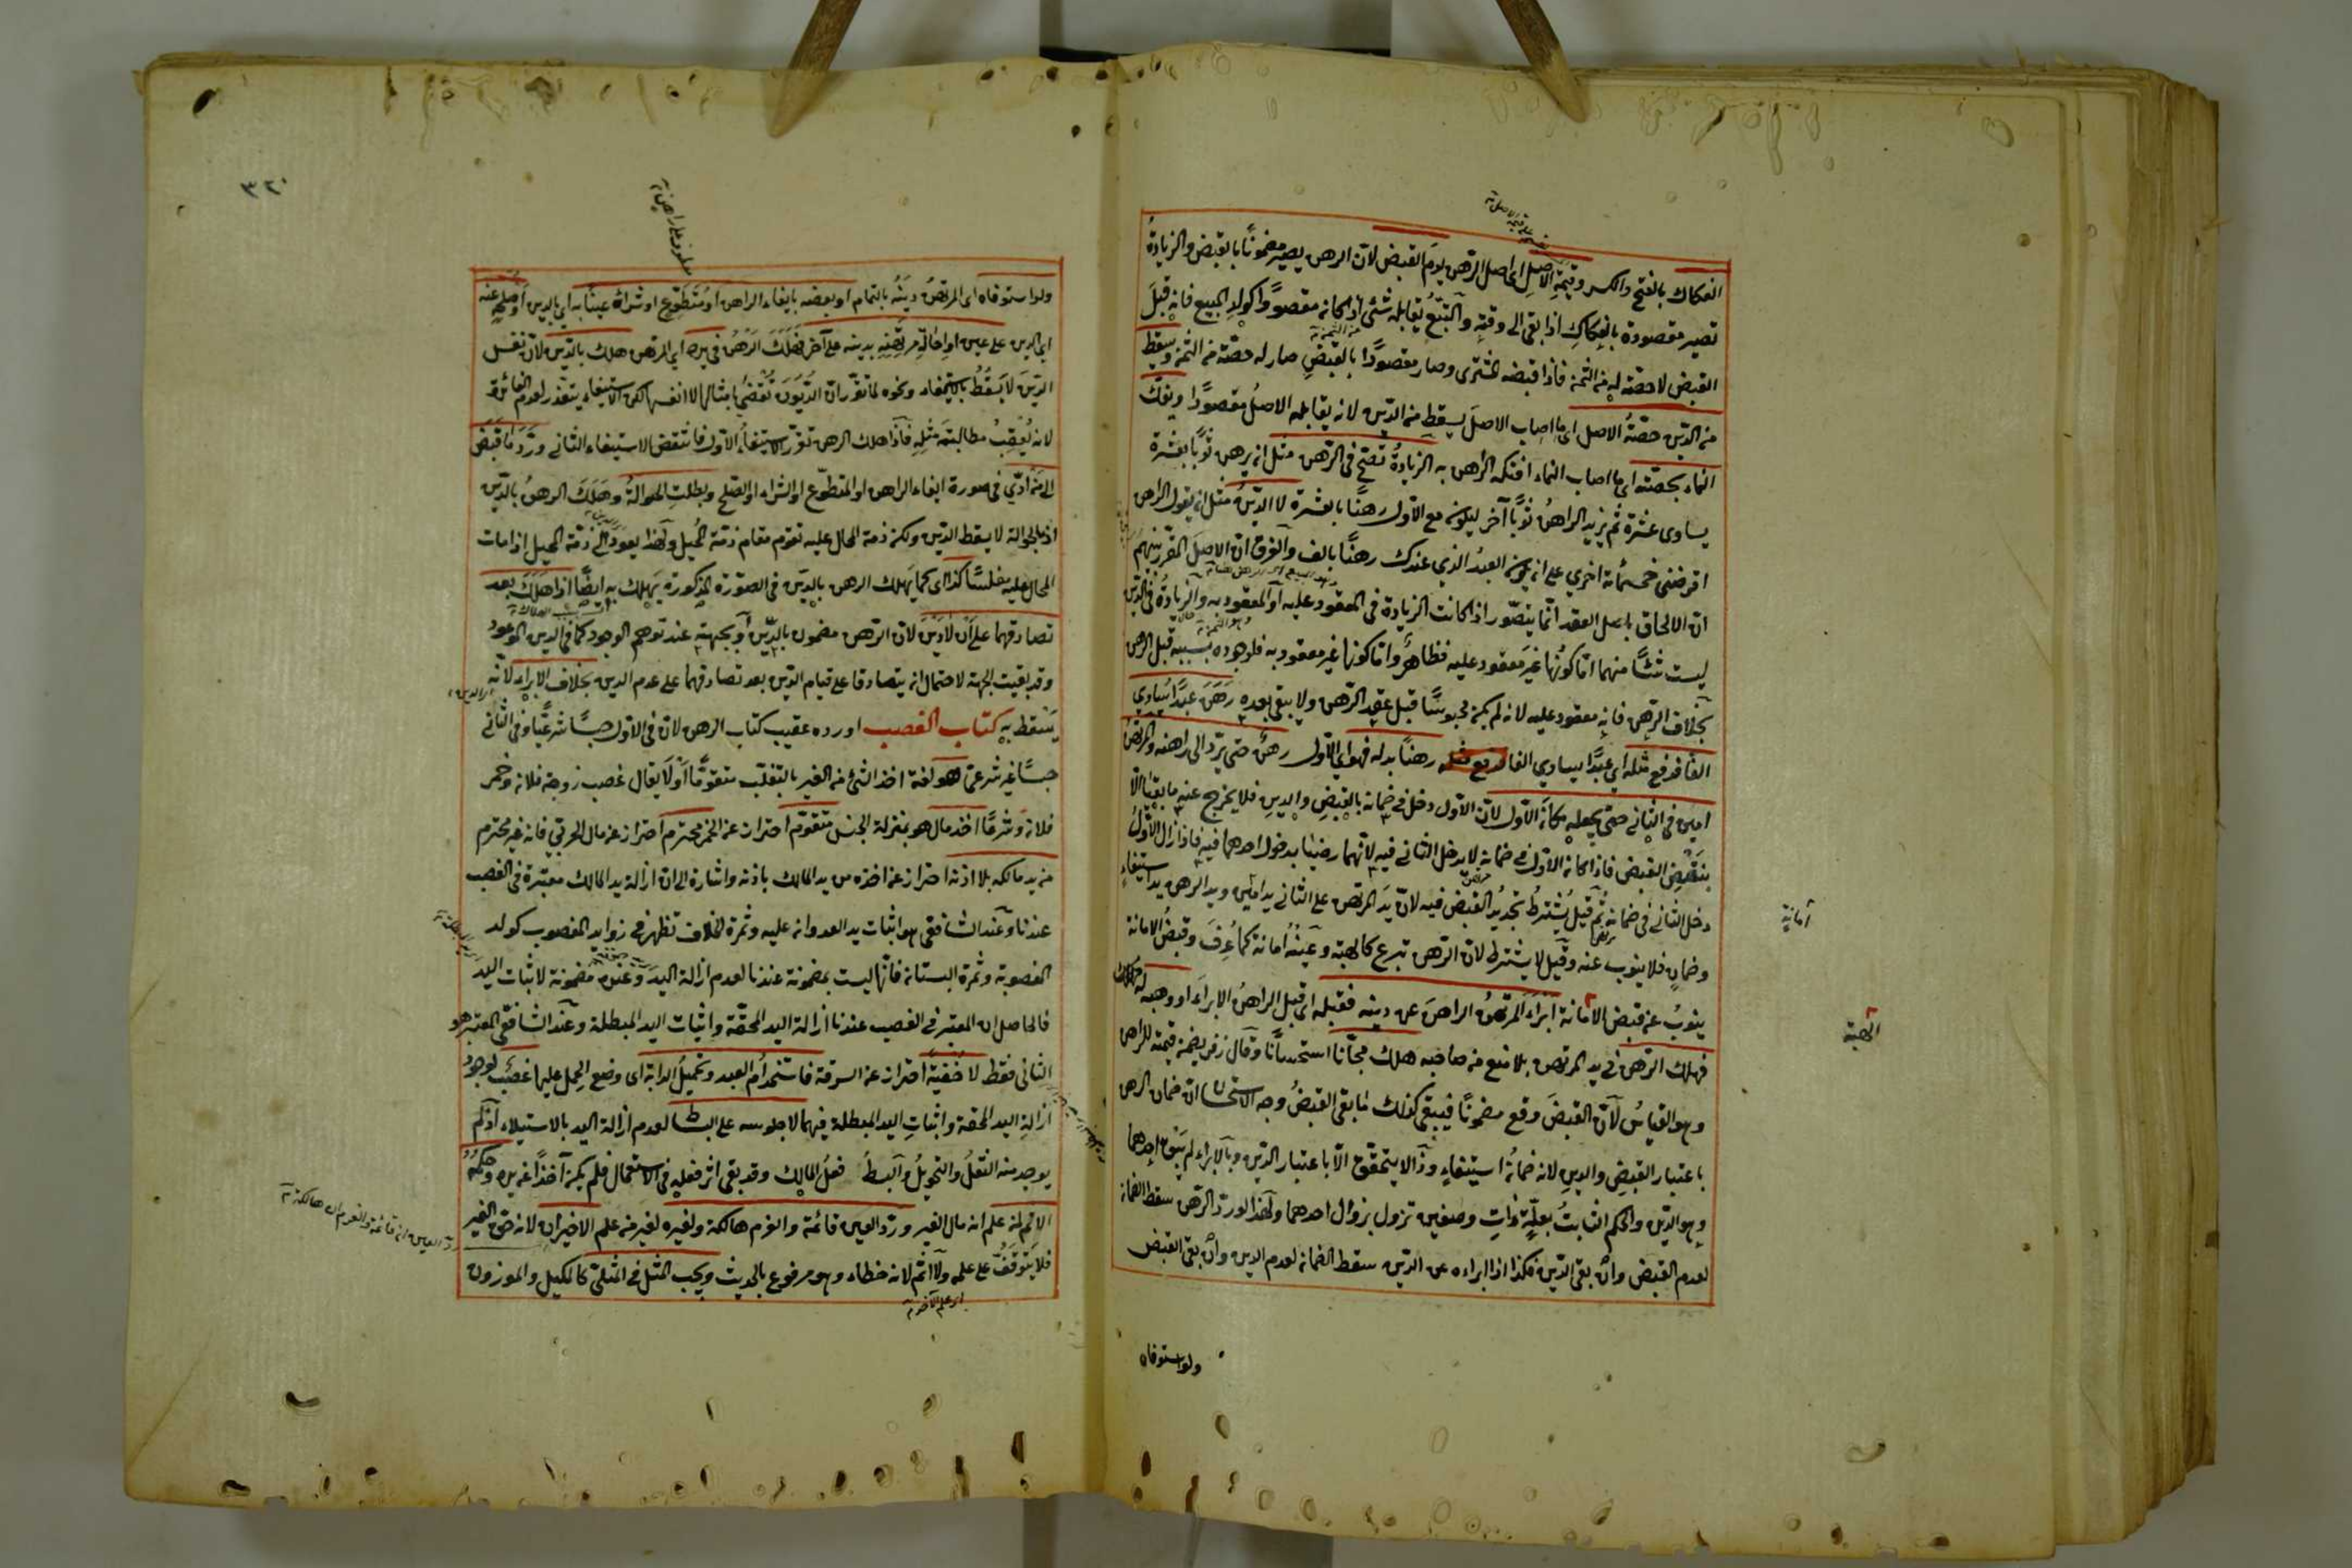 الفكاك بالفتح والكسر وقيمة الاصل اى اصل الرهن يوم القبض لان الرهن يصير مضمونا بالقبض والزيادة
تصير مقصودة بالفكاك اذا بقى الى وقته والتبع يقابله شئ اذا كان مقصودا كولد المبيع فانه قبل
القبض لا حصة له من الثمن فاذا قبضه المشترى وصار مقصودا بالقبض صار له حصة من الثمن وسقط
من الدين حصة الاصل اى ما اصاب الاصل يسقط من الدين لانه يقابله الاصل مقصودا ويفك
النماء بحصته اى ما اصاب النماء افتكه الراهن به الزيادة تصح فى الرهن مثل ان يرهن ثوبا بعشرة
يساوى عشرة ثم يزيد الراهن ثوبا آخر ليكون مع الاول رهنا بالعشرة لا الدين مثل ان يقول الراهن
اقرضنى خمسمائة اخرى على ان يكون العبد الذي عندك رهنا بالف والفرق ان الاصل المقرر بينهم
ان الالحاق باصل العقد انما يتصور اذا كانت الزيادة فى المعقود عليه او المعقود به والزيادة فى الدين
ليست شئا منهما اما كونها غير معقود عليه فظاهر واما كونها غير معقود به فلوجوده بسببه قبل الرهن
بخلاف الرهن فانه معقود عليه لانه لم يكن محبوسا قبل عقد الرهن ولا يبقى بعده رهن عبدا يساوي
الفا فدفع مثله اي عبدا يساوي الفا فدفع مثله رهنا بدله فهو اي الاول رهن حتى يرد الى راهنه والمرتهن
امين فى الثانى حتى يجعله مكان الاول لان الاول دخل فى ضمانه بالقبض والدين فلا يخرج عنه ما بقيا الا
بنقض القبض فاذا كان الاول فى ضمانه لا يدخل الثانى فيه لانهما رضيا بدخول احدهما فيه فاذا زال الاول
دخل الثانى فى ضمانه ثم قيل يشترط تجديد القبض فيه لان يد المرتهن على الثانى يد امين ويد الرهن يد استيفاء
وضمان فلا ينوب عنه وقيل لا يشترط لان الرهن تبرع كالهبة وعينه امانة كما عرف وقبض الامانة
ينوب عن قبض الامانة ابراء المرتهن الراهن عن دينه فقبله اى قبل الراهن الابراء او وهبه له
فهلك الرهن فى يد المرتهن بلا منع من صاحبه هلك مجانا استحسانا وقال زفر يضمن قيمته للراهن
وهو القياس لان القبض وقع مضمونا فيبقى كذلك ما بقى القبض وجه الاستحسان ان ضمان الرهن
باعتبار القبض والدين لانه ضمان استيفاء وذا لا يتحقق الا باعتبار الدين وبالابراء لم يبق احدهما
وهو الدين والحكم الثابت بعلة ذات وصفين تزول بزوال احدهما ولهذا لو رد الرهن سقط الضمان
لعدم القبض وان بقى الدين فكذا اذا ابراءه عن الدين سقط الضمان لعدم الدين وان بقى القبض
امانة
الهبة
ولو استوفاه
٣٢٠
ولو استوفاه اى المرتهن دينه بالتمام او بعضه بايفاء الراهن او متطوع او شراه عينا به اي بالدين او صلحه عنه
اي الدين على عين او احالة مرتهنه بدينه على آخر فهلك الرهن فى يده اي المرتهن هلك بالدين لان نفس
الدين لا يسقط بالاستيفاء ونحوه لما تقرر ان الديون تقضى بامثالها لا انفسها لكن الاستيفاء يتعذر لعدم الفائدة
لانه يعقب مطالبة مثله فاذا هلك الرهن تقرر الاستيفاء الاول فانتقض الاستيفاء الثانى ورد ما قبض
الى من ادى فى صورة ايفاء الراهن او المتطوع او الشراء او الصلح وبطلت الحوالة وهلك الرهن بالدين
اذ بالحوالة لا يسقط الدين ولكن ذمة المحال عليه تقوم مقام ذمة المحيل ولهذا يعود الى ذمة المحيل اذا مات
المحال عليه مفلسا كذا اى كما يهلك الرهن بالدين فى الصورة المذكورة يهلك به ايضا اذا هلك بعد
تصادقهما على ان لا دين لان الرهن مضمون بالدين او بجهته عند توهم الوجود كما فى الدين الموعود
وقد بقيت الجهة لاحتمال ان يتصادقا على قيام الدين بعد تصادقهما على عدم الدين بخلاف الابراء لانه
يسقط به كتاب الغصب اورده عقيب كتاب الرهن لان فى الاول حبسا شرعيا وفى الثانى
حبسا غير شرعى هو لغة اخذ الشئ من الغير بالتغلب متقوما او لا يقال غصب زوجة فلان وخمر
فلان وشرعا اخذ مال هو بمنزلة الجنس متقوم احتراز عن الخمر محترم احتراز عن مال الحربى فانه غير محترم
من يد مالكه بلا اذنه احتراز عن اخذه من يد المالك باذنه واشارة الى ان ازالة يد المالك معتبرة فى الغصب
عندنا وعند الشافعى هو اثبات يد العدوان عليه وثمرة الخلاف تظهر فى زوايد المغصوب كولد
المغصوبة وثمرة البستان فانها ليست بمضمونة عندنا لعدم ازالة اليد وعنده مضمونة لاثبات اليد
فالحاصل ان المعتبر فى الغصب عندنا ازالة اليد المحقة واثبات اليد المبطلة وعند الشافعى المعتبر هو
الثانى فقط لا خفية احتراز عن السرقة فاستخدام العبد وتحميل الدابة اى وضع الحمل عليها غصب لوجود
ازالة اليد المحقة واثبات اليد المبطلة فيهما لا جلوسه على البساط لعدم ازالة اليد بالاستيلاء اذ لم
يوجد منه النقل والتحويل والبسط فعل المالك وقد بقى اثر فعله فى الاستعمال فلم يكن آخذا عن يده وحكمه
الاثم لمن علم انه مال الغير ورد العين قائمة والغرم هالكة ولغيره لغير من علم الاخيران لانه حق الغير
فلا يتوقف على علمه ولا اثم لانه خطاء وهو مرفوع بالحديث ويجب المثل فى المثلى كالمكيل والموزون